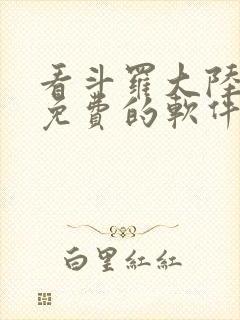 看斗羅大陸
免費的軟件
白里紅紅